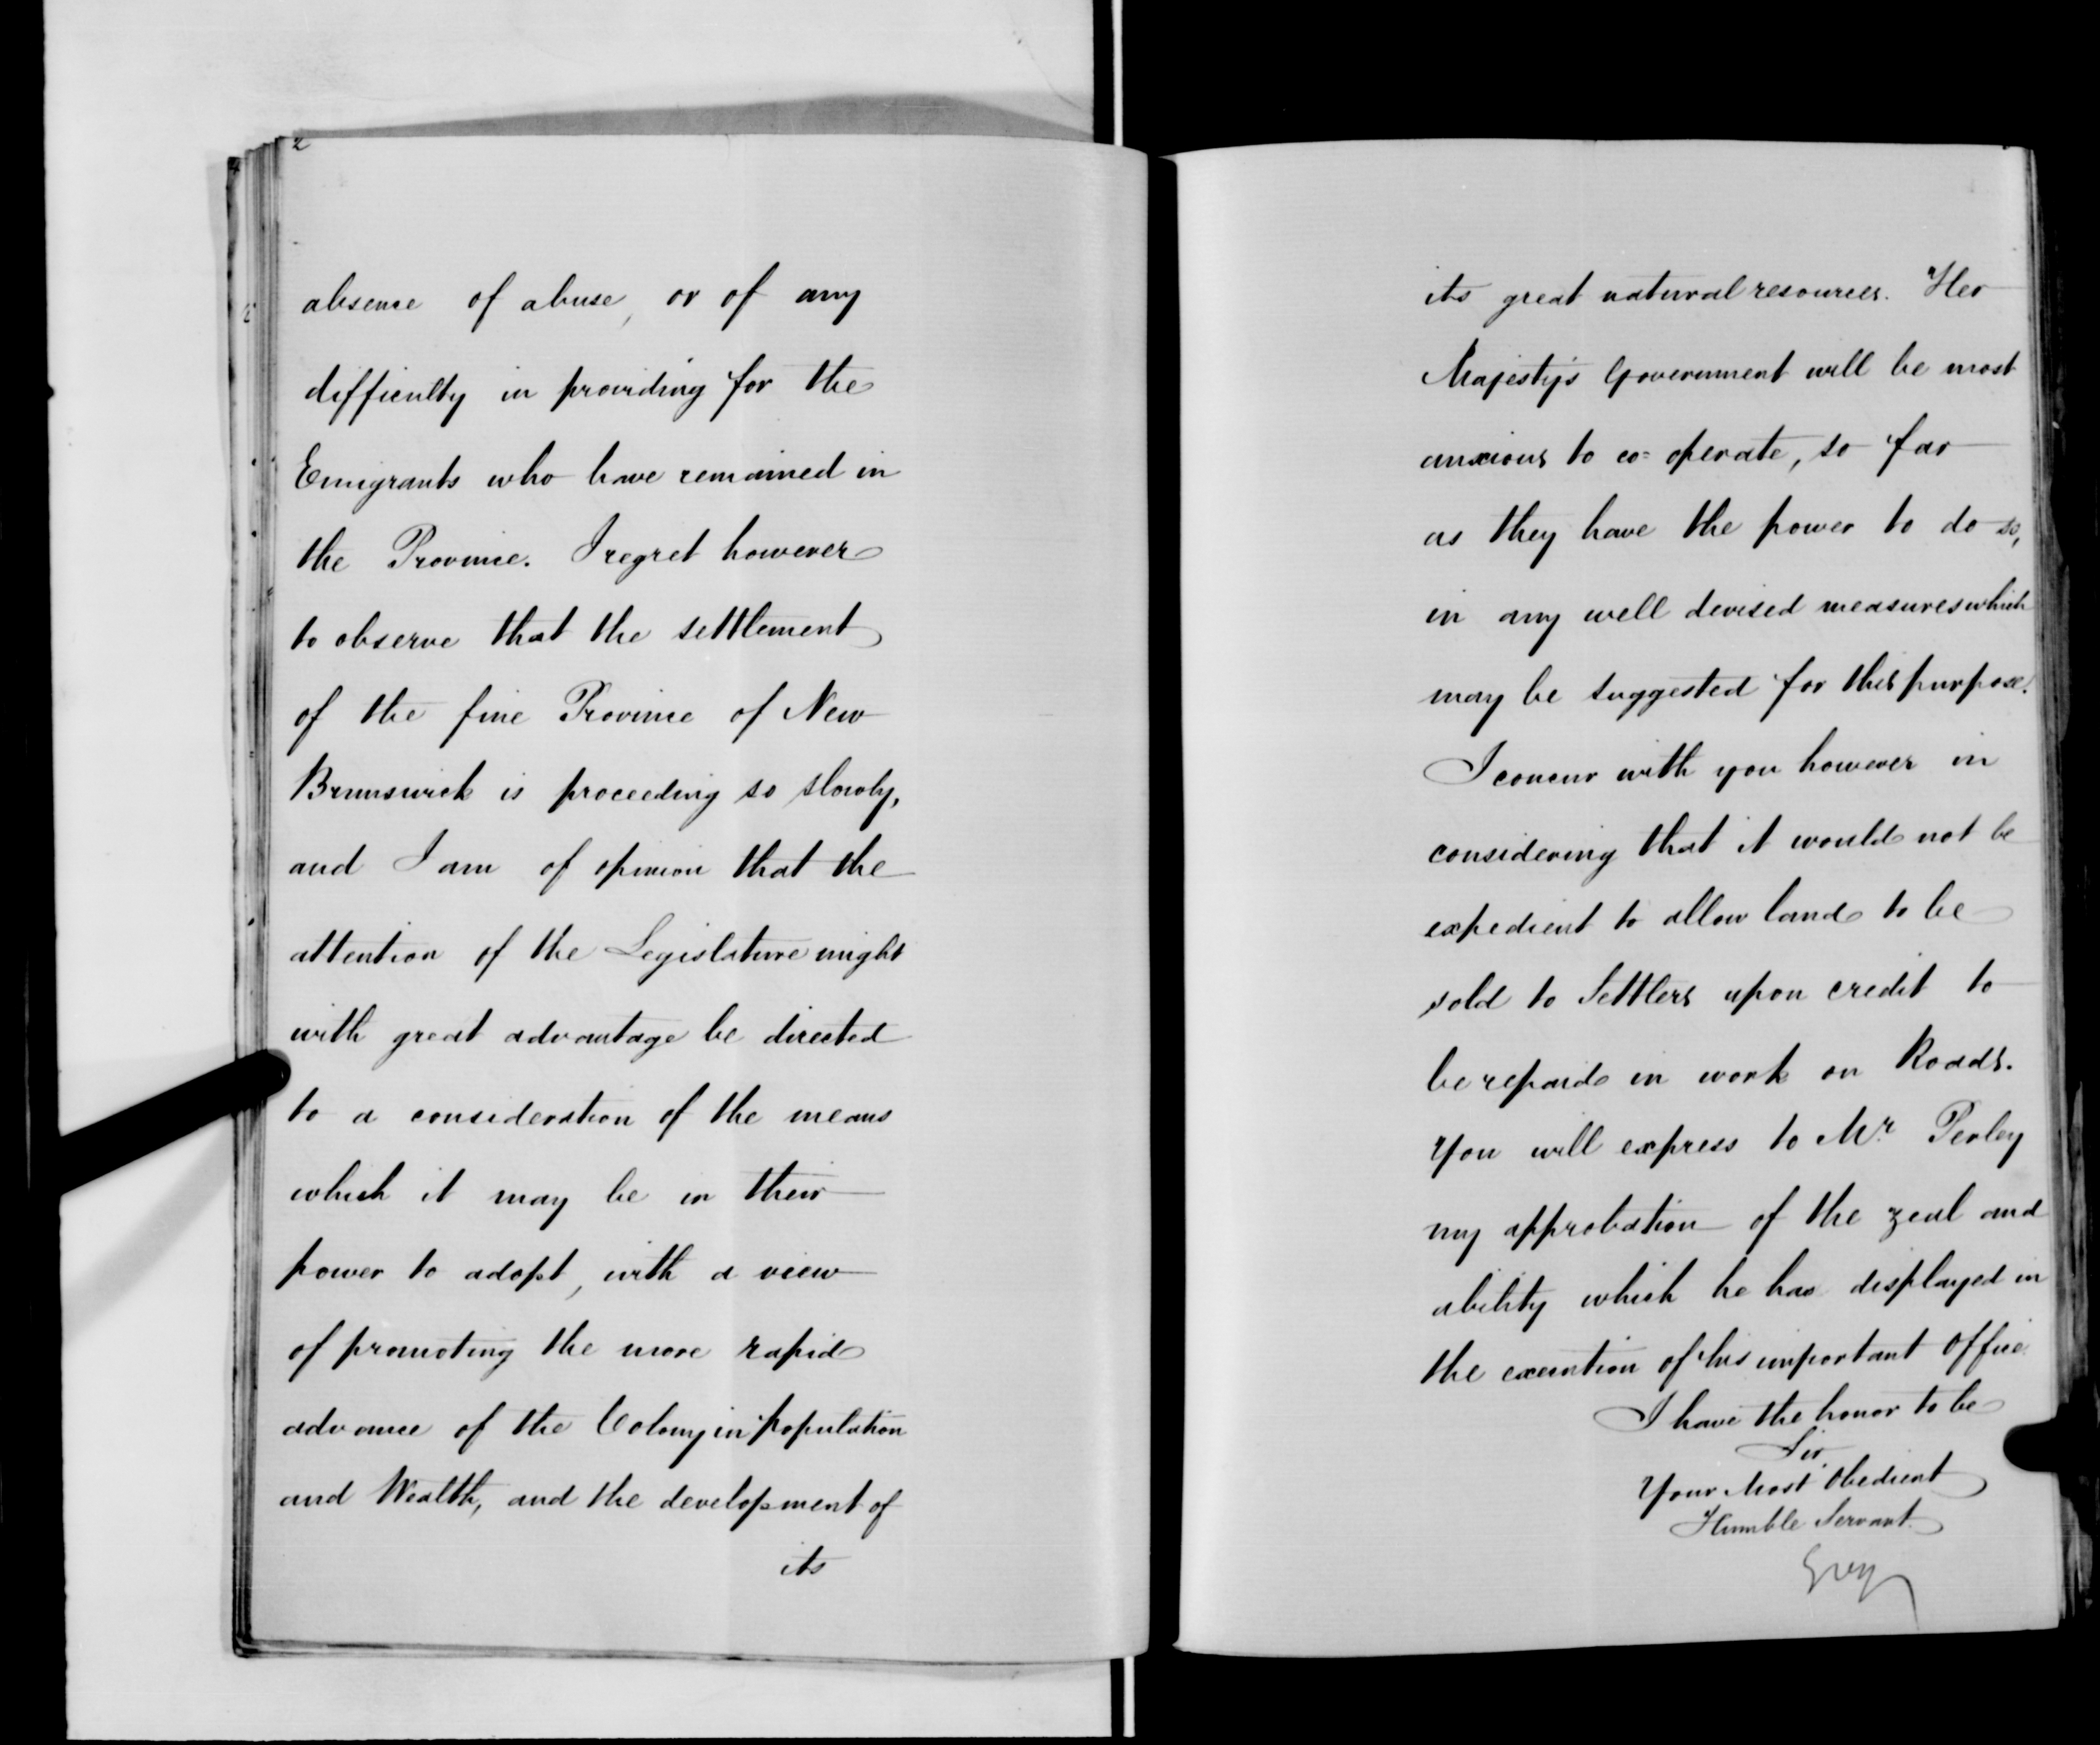 absence of abuse, or of any
difficulty in providing for the
Emigrants who have remained in
the Province. I regret however
to observe that the settlement
of the fine Province of New
Brunswick is proceeding so slowly,
and I am of opinion that the
attention of the Legislature might
with great advantage be directed
to a consideration of the means
which it may be in their
power to adopt, with a view
of promoting the more rapid
advance of the Colony in population
and Wealth, and the development of
its
its great natural resources. Her
Majesty's Government will be most
anxious to co=operate, so far
as they have the power to do so,
in any well devised measures which
may be suggested for this purpose.
I concur with you however in
considering that it would not be
expedient to allow land to be
sold to Settlers upon credit to
be repaid in work on Roads.
You will express to Mr. Perley
my approbation of the zeal and
ability which he has displayed in
the execution of his important Office.
I have the honor to be
Sir,
Your Most Obedient
Humble Servant.
Grey